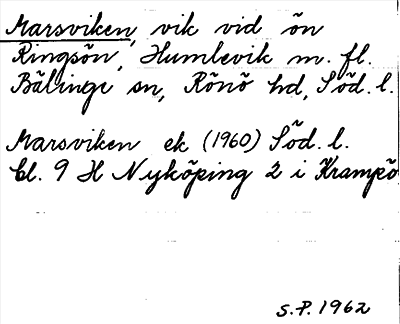 Marsviken, vik vid ön
Ringsön, Humlevik m. fl.
Bälinge sn, Rönö hd, Söd. l.
Marsviken ek (1960) Söd. l.
bl. 9 H Nyköping 2 i Krampö
S.P. 1962